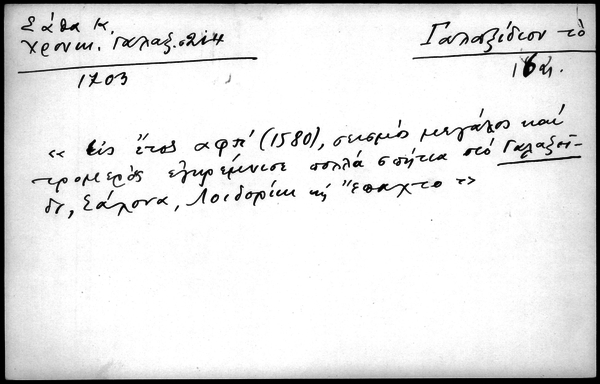 Σάθα Κ.
Χρονικ. Γαλαξ. σ 214
1703
Γαλαξείδιον τὸ
16 αἰ.
« Εἰς ἔτος αφπ' (1580), σεισμὸς μεγάλος καί
τρομερὸς ἐγκρέμνισε πολλὰ σπήτια στό Γαλαξεί-
δι, Σάλονα, Λοιδορίκι κή Ἔπαχτο »